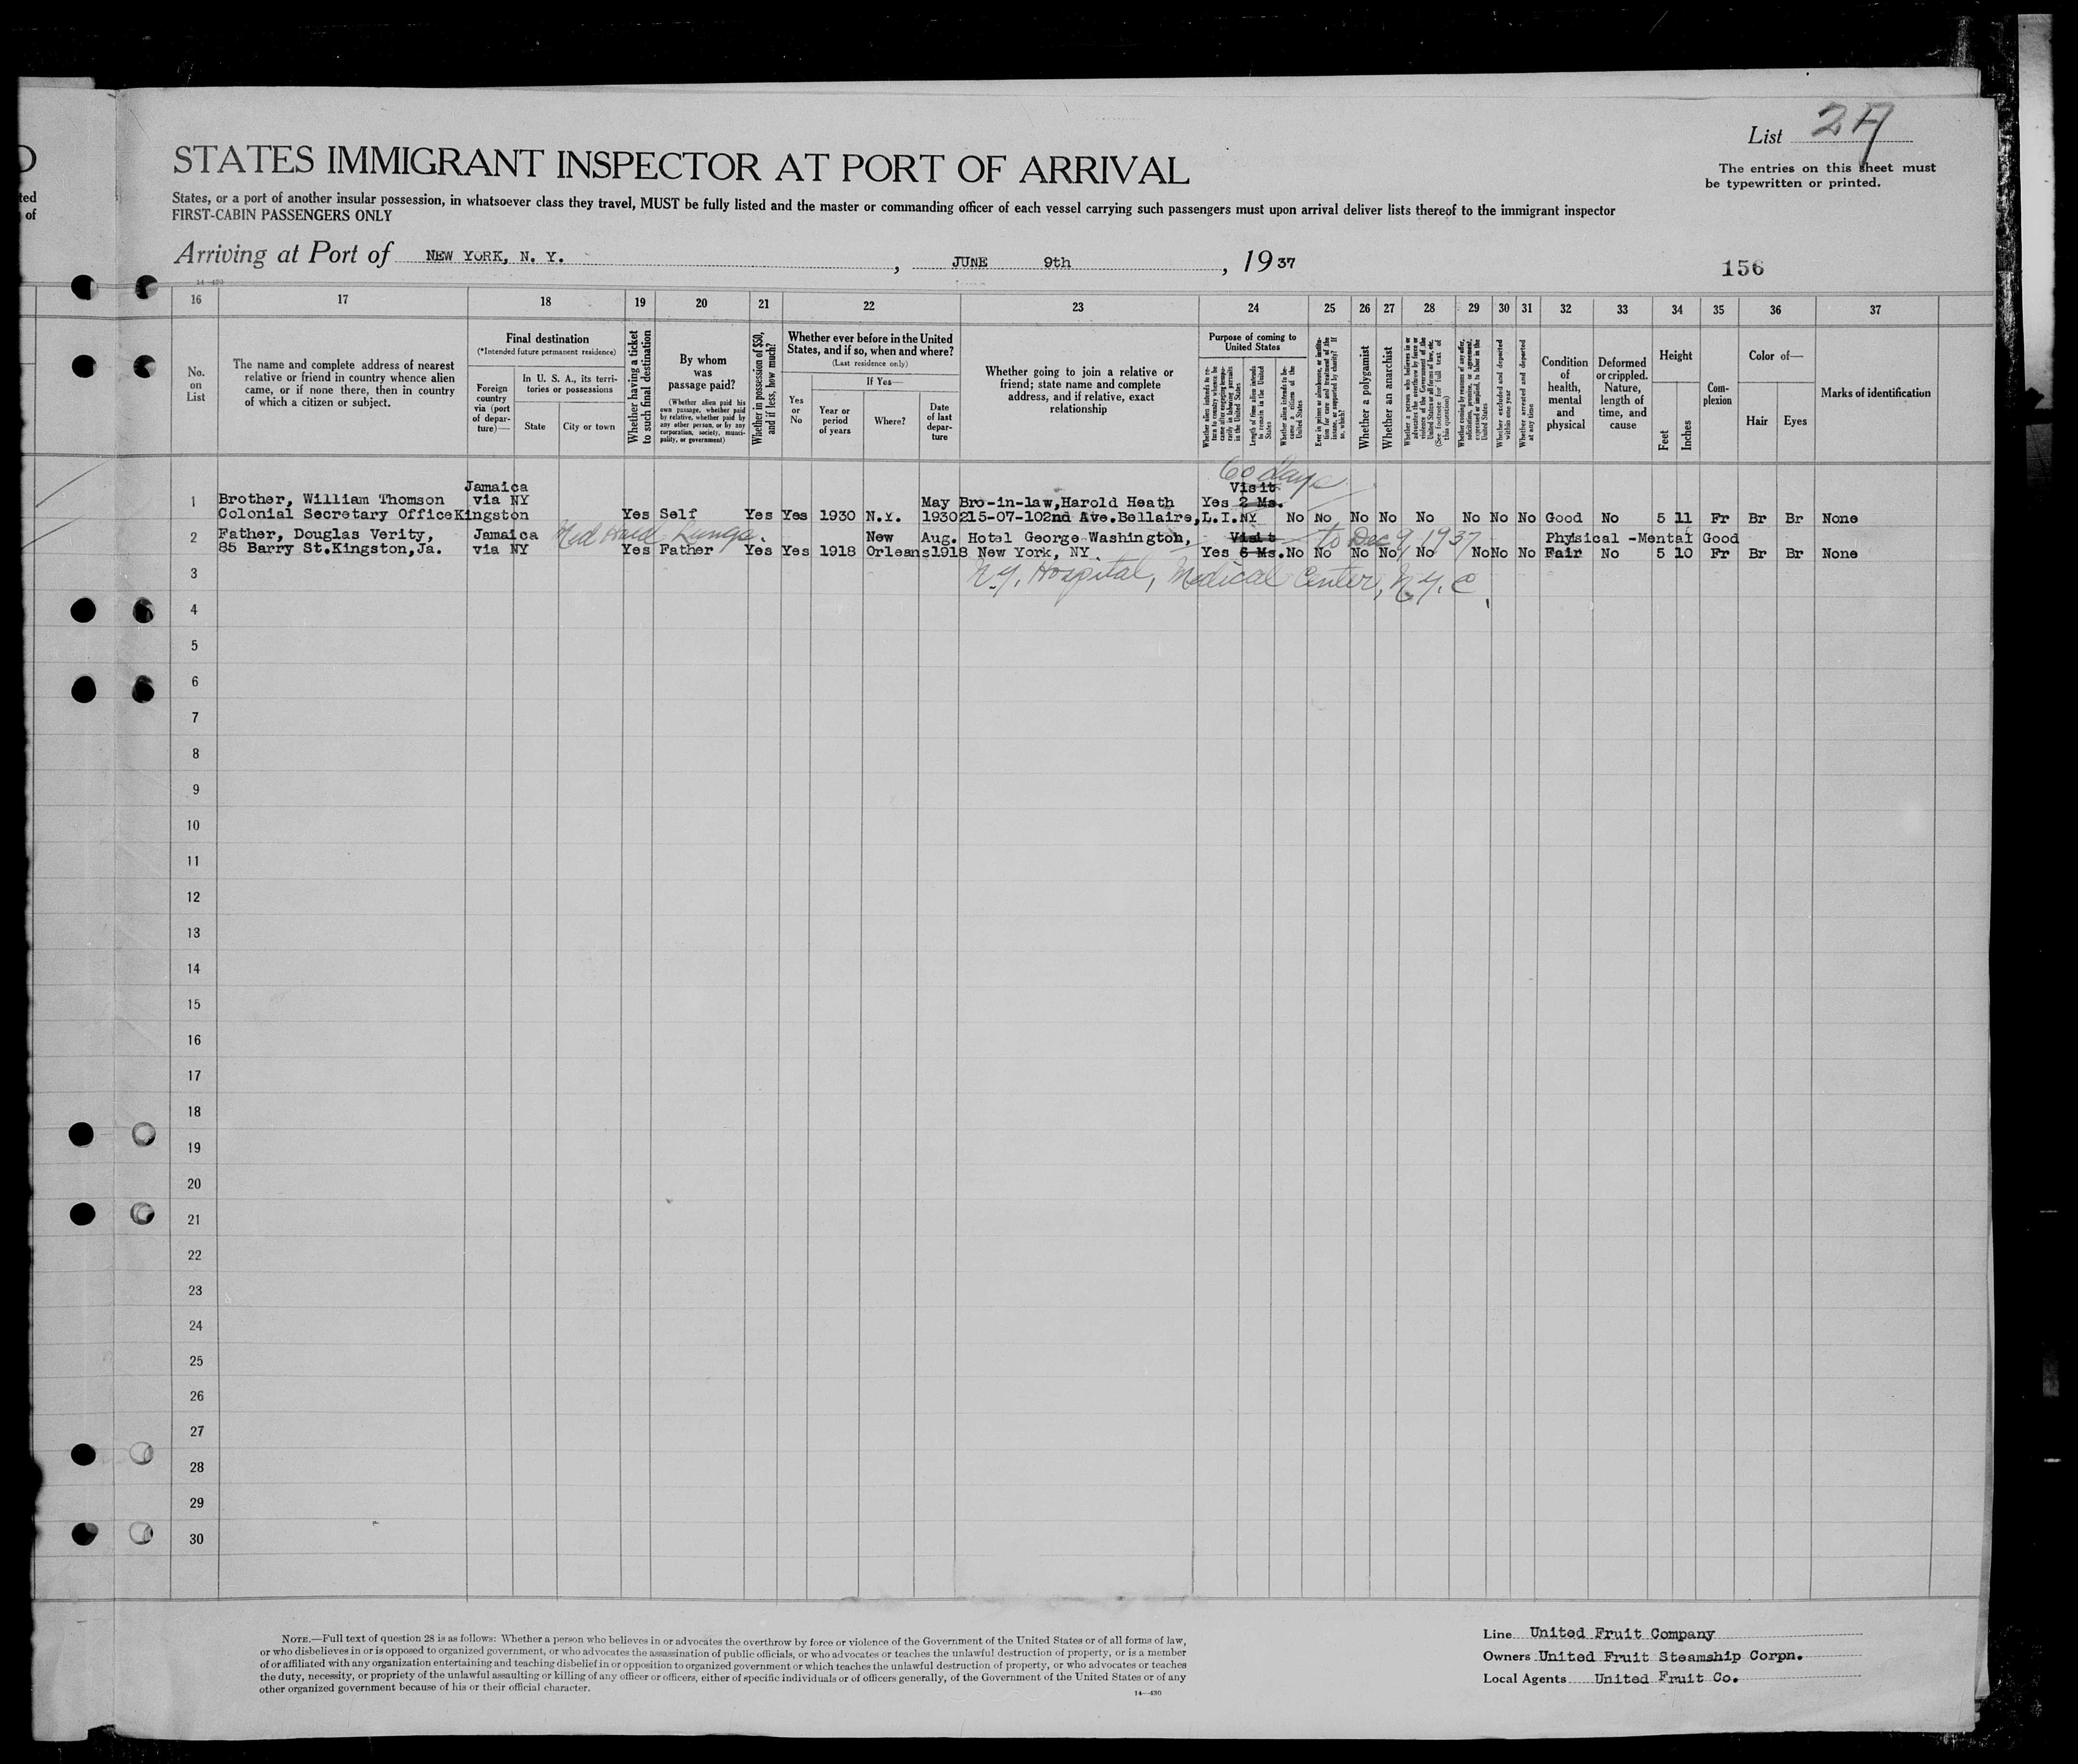 List 2A
The entries on this sheet must
be typewritten or printed.
ted
of
STATES IMMIGRANT INSPECTOR AT PORT OF ARRIVAL
States, or a port of another insular possession, in whatsoever class they travel, MUST be fully listed and the master or commanding officer of each vessel carrying such passengers must upon arrival deliver lists thereof to the immigrant inspector
FIRST-CABIN PASSENGERS ONLY
Arriving at Port of NEW YORK, N. Y. , JUNE 9th , 19 37
156
14—430
16 17 18 19 20 21 22 23 24 25 26 27 28 29 30 31 32 33 34 35 36 37
No. on List
The name and complete address of nearest relative or friend in country whence alien came, or if none there, then in country of which a citizen or subject.
Final destination
(*Intended future permanent residence)
Foreign country via (port of departure)—
In U. S. A., its territories or possessions
State
City or town
Whether having a ticket to such final destination
By whom was passage paid?
(Whether alien paid his own passage, whether paid by relative, whether paid by any other person, or by any corporation, society, municipality, or government)
Whether in possession of $50, and if less, how much?
Whether ever before in the United States, and if so, when and where?
(Last residence only)
Yes or No
If Yes—
Year or period of years
Where?
Date of last departure
Whether going to join a relative or friend; state name and complete address, and if relative, exact relationship
Purpose of coming to United States
Whether alien intends to return to country whence he came after engaging temporarily in laboring pursuits in the United States
Length of time alien intends to remain in the United States
Whether alien intends to become a citizen of the United States
Ever in prison or almshouse, or institution for care and treatment of the insane, or supported by charity? If so, which?
Whether a polygamist
Whether an anarchist
Whether a person who believes in or advocates the overthrow by force or violence of the Government of the United States or all forms of law, etc. (See footnote for full text of this question)
Whether coming by reason of any offer, solicitation, promise, or agreement, expressed or implied, to labor in the United States
Whether excluded and deported within one year
Whether arrested and deported at any time
Condition of health, mental and physical
Deformed or crippled. Nature, length of time, and cause
Height
Feet
Inches
Complexion
Color of—
Hair
Eyes
Marks of identification
60 days
Jamaica Visit
1 Brother, William Thomson via NY May Bro-in-law,Harold Heath Yes 2 Ms.
Colonial Secretary OfficeKingston Yes Self Yes Yes 1930 N.Y. 1930 215-07-102nd Ave.Bellaire,L.I.NY No No No No No No No No Good No 5 11 Fr Br Br None
2 Father, Douglas Verity, Jamaica New Aug. Hotel George Washington, Visit to Dec 9, 1937 Physical -Mental Good
85 Barry St.Kingston,Ja. via NY Yes Father Yes Yes 1918 Orleans 1918 New York, NY. Yes 6 Ms. No No No No No No No No Fair No 5 10 Fr Br Br None
3 N.Y. Hospital, Medical Center, N.Y.C.
4
5
6
7
8
9
10
11
12
13
14
15
16
17
18
19
20
21
22
23
24
25
26
27
28
29
30
NOTE.—Full text of question 28 is as follows: Whether a person who believes in or advocates the overthrow by force or violence of the Government of the United States or of all forms of law,
or who disbelieves in or is opposed to organized government, or who advocates the assassination of public officials, or who advocates or teaches the unlawful destruction of property, or is a member
of or affiliated with any organization entertaining and teaching disbelief in or opposition to organized government or which teaches the unlawful destruction of property, or who advocates or teaches
the duty, necessity, or propriety of the unlawful assaulting or killing of any officer or officers, either of specific individuals or of officers generally, of the Government of the United States or of any
other organized government because of his or their official character.
14—430
Line United Fruit Company
Owners United Fruit Steamship Corpn.
Local Agents United Fruit Co.